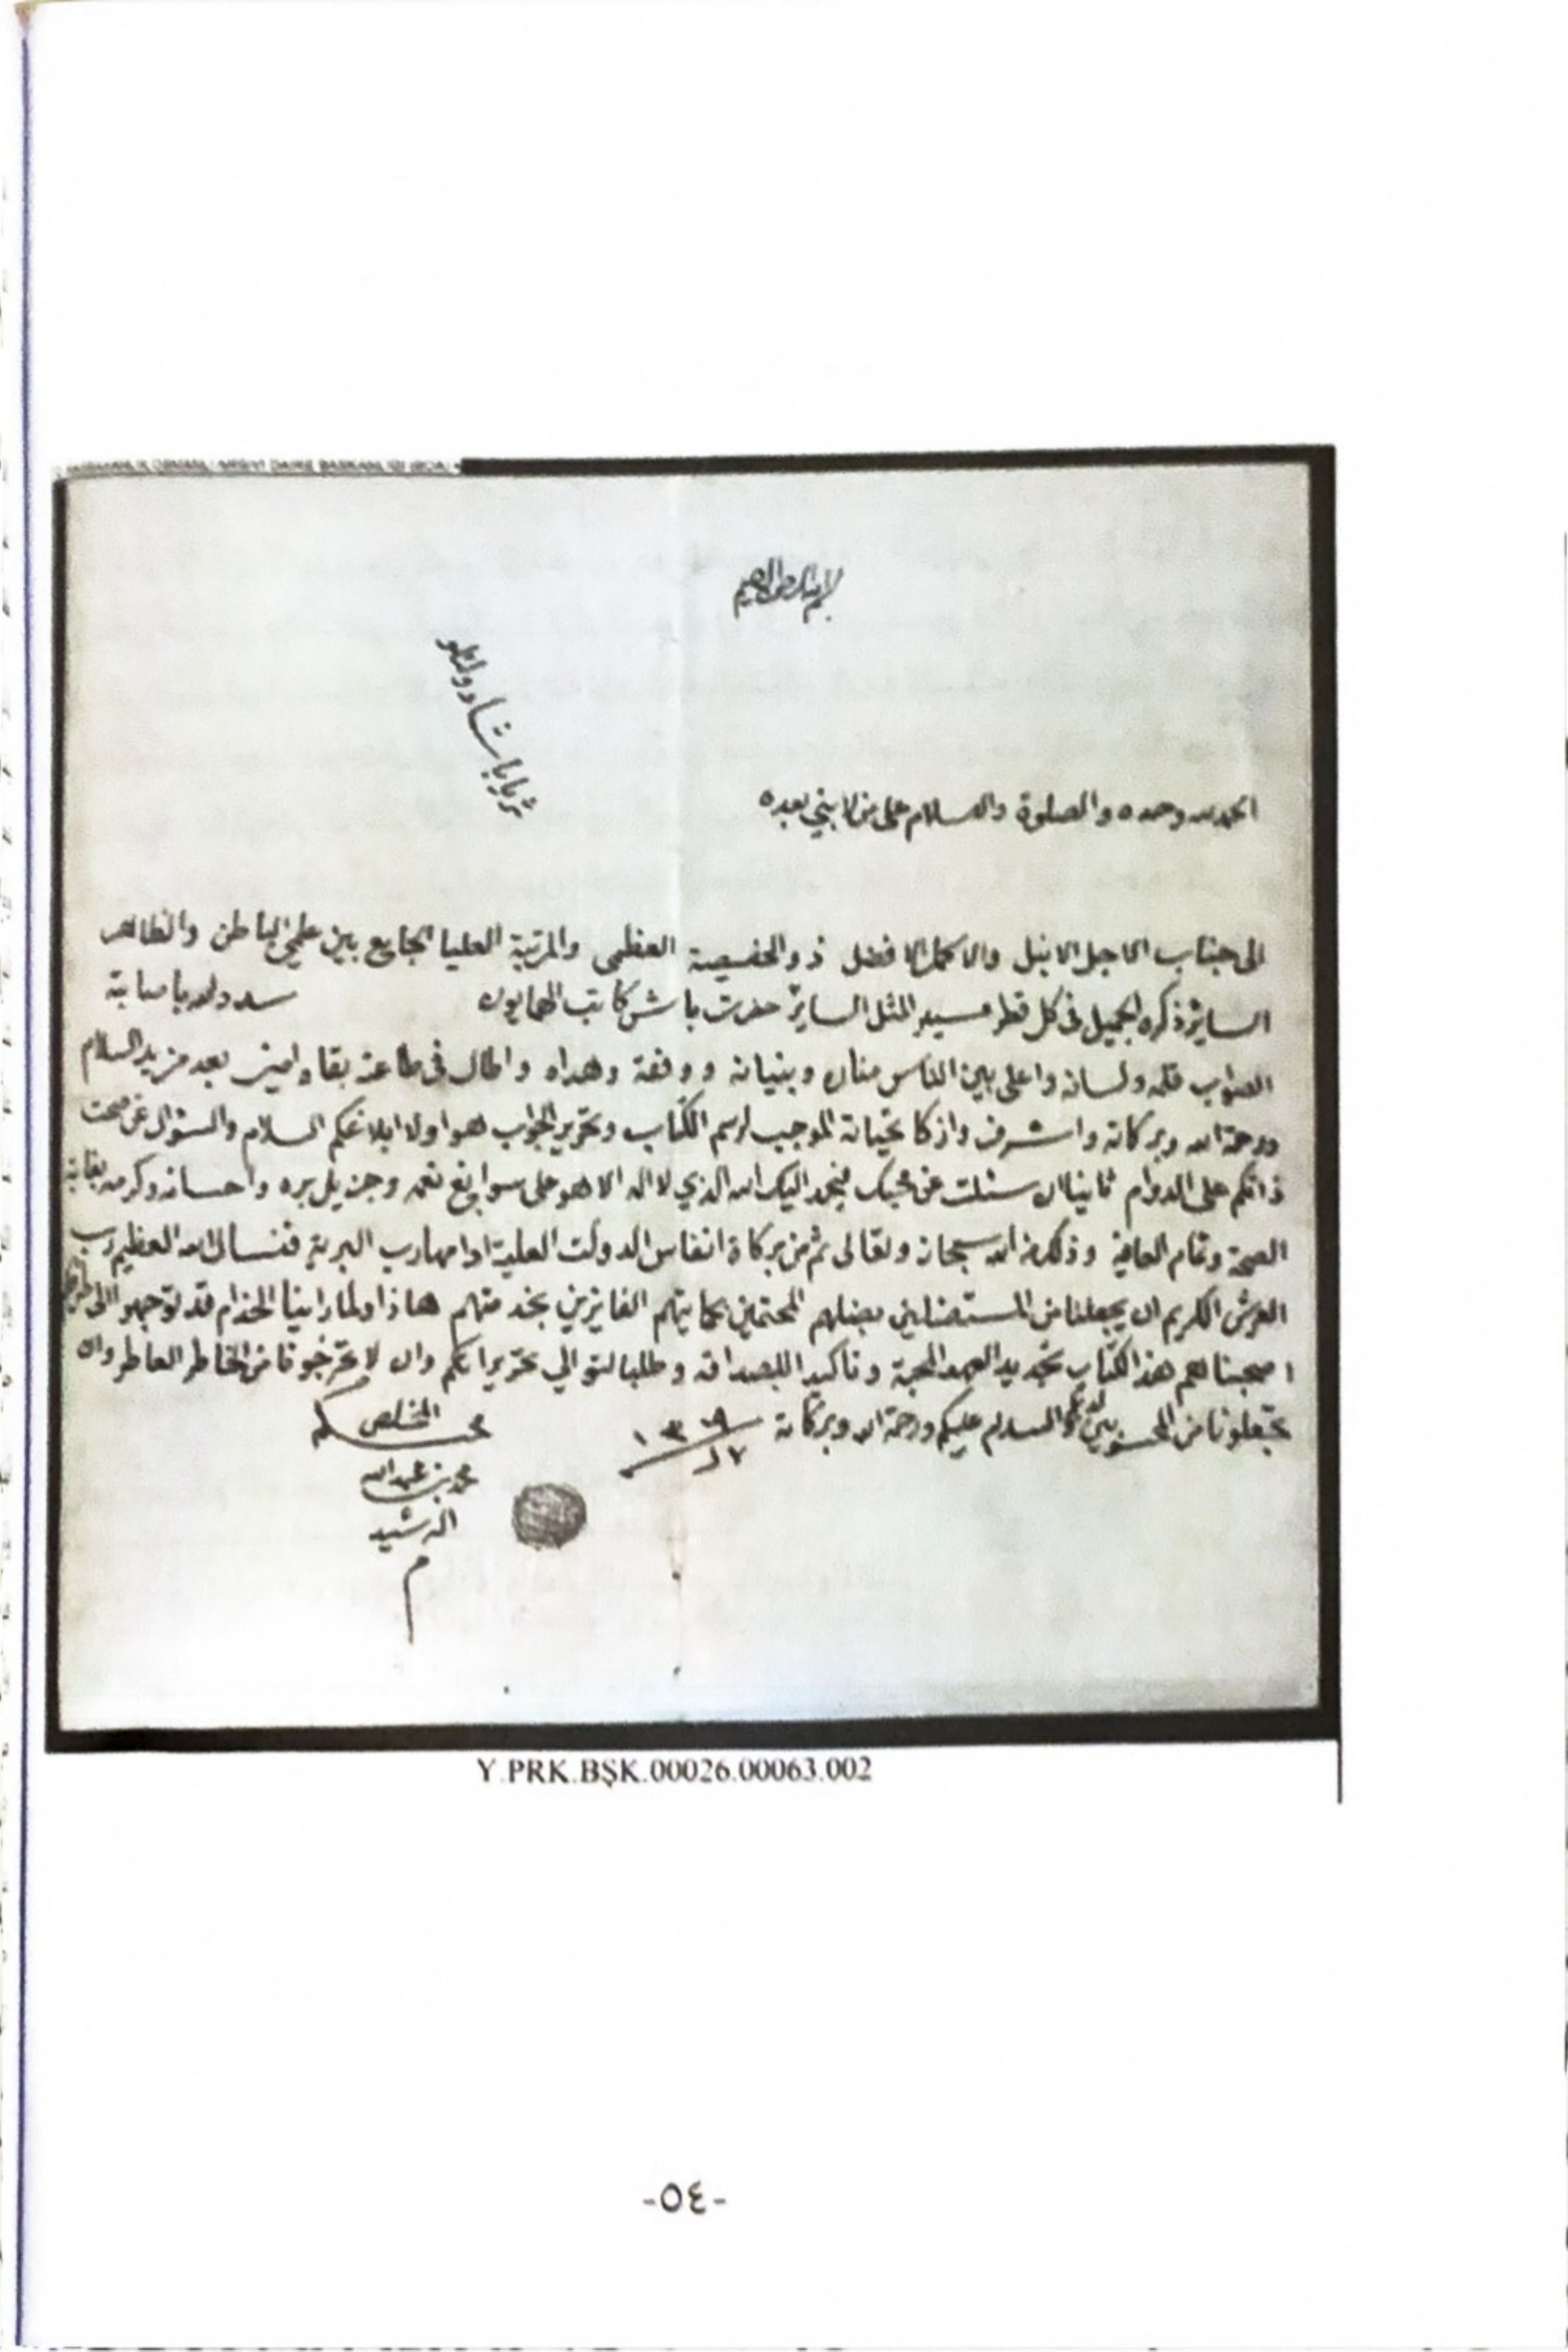 بسم الله الرحمن الرحيم
دولتلو
ثريا باشا
الحمد لله وحده والصلوة والسلام على من لا نبي بعده
الى جناب الاجل الانبل والاكمل الافضل ذو الخصيصة العظمى والمرتبة العليا الجامع بين علمي الباطن والظاهر
الساير ذكره الجميل في كل قطر مسير المثل الساير حضرت باش كاتب الهمايون سدد الله باصابة
الصواب قلمه ولسانه واعلى بين الناس مناره وبنيانه ووفقه وهداه واطال في طاعته بقاه امين بعد مزيد السلام
ورحمة الله وبركاته واشرف وازكا تحياته الموجب لرسم الكتاب وتحرير الجواب هو اولا ابلاغكم السلام والسئوال عن صحت
ذاتكم على الدوام ثانيا ان سئلت عن محبك فنحمد اليك الله الذي لا اله الا هو على سوابغ نعمه وجزيل بره واحسانه وكرمه بغاية
الصحة وتمام العافية وذلك من الله سبحانه وتعالى ثم من بركاة انفاس الدولت العلية ادامها رب البرية فنسال الله العظيم رب
العرش الكريم ان يجعلنا من المستضلين بضلهم المحتمين بحمايتهم الفايزين بخدمتهم هاذا ولما راينا الخدام قد توجهو الى
اصحبناهم هذا الكتاب تجديد العهد المحبة وتاكيد الصداقة وطلبا لتوالي تحريراتكم وان لا تخرجونا من الخاطر العاطر وان
تجعلونا من المحسوبين لديكم والسلام عليكم ورحمة الله وبركاته ١٣٠٩
١٧ ر
المخلص
محبكم
محمد بن عبدالله
الرشيد
م
Y.PRK.BŞK.00026.00063.002
-٥٤-